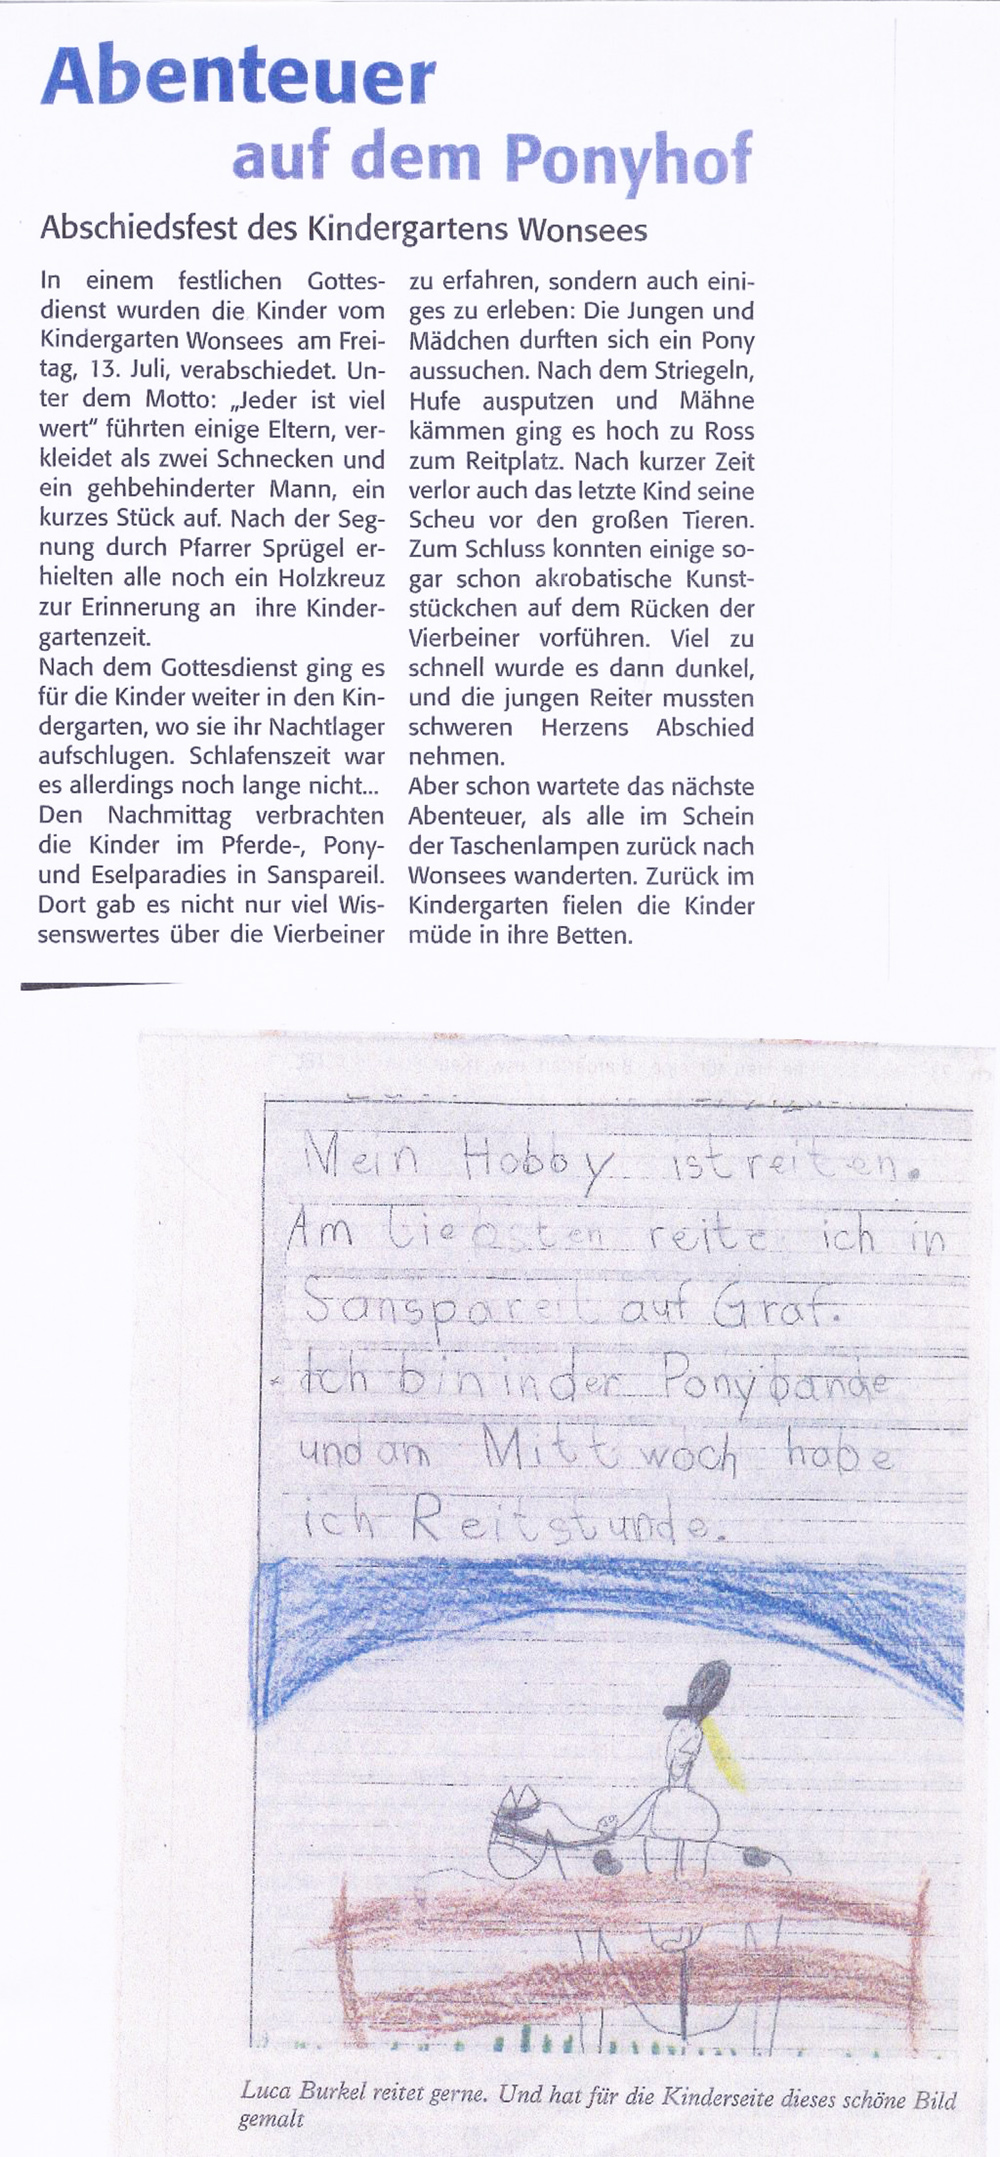 Abenteuer
auf dem Ponyhof
Abschiedsfest des Kindergartens Wonsees
In einem festlichen Gottes-
dienst wurden die Kinder vom
Kindergarten Wonsees am Frei-
tag, 13. Juli, verabschiedet. Un-
ter dem Motto: „Jeder ist viel
wert“ führten einige Eltern, ver-
kleidet als zwei Schnecken und
ein gehbehinderter Mann, ein
kurzes Stück auf. Nach der Seg-
nung durch Pfarrer Sprügel er-
hielten alle noch ein Holzkreuz
zur Erinnerung an ihre Kinder-
gartenzeit.
Nach dem Gottesdienst ging es
für die Kinder weiter in den Kin-
dergarten, wo sie ihr Nachtlager
aufschlugen. Schlafenszeit war
es allerdings noch lange nicht...
Den Nachmittag verbrachten
die Kinder im Pferde-, Pony-
und Eselparadies in Sanspareil.
Dort gab es nicht nur viel Wis-
senswertes über die Vierbeiner
zu erfahren, sondern auch eini-
ges zu erleben: Die Jungen und
Mädchen durften sich ein Pony
aussuchen. Nach dem Striegeln,
Hufe ausputzen und Mähne
kämmen ging es hoch zu Ross
zum Reitplatz. Nach kurzer Zeit
verlor auch das letzte Kind seine
Scheu vor den großen Tieren.
Zum Schluss konnten einige so-
gar schon akrobatische Kunst-
stückchen auf dem Rücken der
Vierbeiner vorführen. Viel zu
schnell wurde es dann dunkel,
und die jungen Reiter mussten
schweren Herzens Abschied
nehmen.
Aber schon wartete das nächste
Abenteuer, als alle im Schein
der Taschenlampen zurück nach
Wonsees wanderten. Zurück im
Kindergarten fielen die Kinder
müde in ihre Betten.
Mein Hobby ist reiten.
Am liebsten reite ich in
Sanspareil auf Graf.
Ich bin in der Ponybande
und am Mittwoch habe
ich Reitstunde.
Luca Burkel reitet gerne. Und hat für die Kinderseite dieses schöne Bild
gemalt